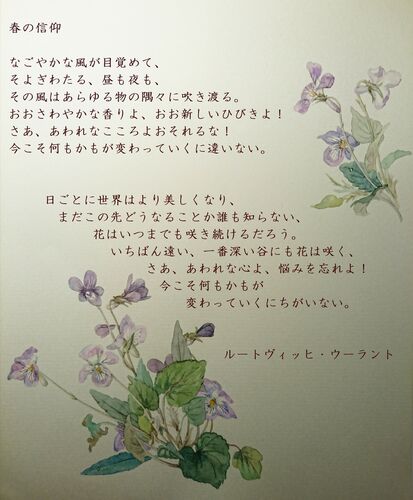 春の信仰
なごやかな風が目覚めて、
そよぎわたる、昼も夜も、
その風はあらゆる物の隅々に吹き渡る。
おおさわやかな香りよ、おお新しいひびきよ！
さあ、あわれなこころよおそれるな！
今こそ何もかもが変わっていくに違いない。
日ごとに世界はより美しくなり、
まだこの先どうなることか誰も知らない、
花はいつまでも咲き続けるだろう。
いちばん遠い、一番深い谷にも花は咲く、
さあ、あわれな心よ、悩みを忘れよ！
今こそ何もかもが
変わっていくにちがいない。
ルートヴィッヒ・ウーラント